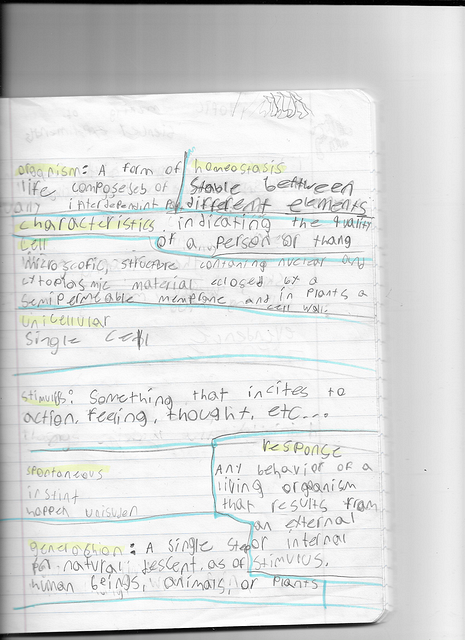 organism: A form of
life composeses of
any interdependent
homeostasis
Stable between
different elements
characteristics indicating the quality
of a person or thang
Cell
microscopic, structure containg nuclear and
cytoplasmic material eclosed by a
semipermeable membrane and in plants a
cell wall.
Unicellular
Single Cell
stimulus: Something that incites to
action, feeling, thought, etc...
response
Any behavior of a
living organism
that results from
an external
or internal
stimulus.
spontaneous
instint
happen
generation: A single step
natural descent, as of
human beings, animals, or plants